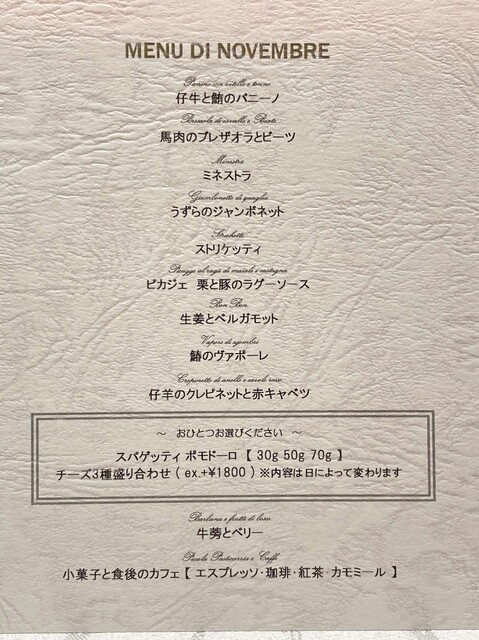 MENU DI NOVEMBRE
Panino con vitello e tonno
仔牛と鮪のパニーノ
Bresaola di cavallo e Beats
馬肉のブレザオラとビーツ
Minestra
ミネストラ
Giambonetto di quaglie
うずらのジャンボネット
Strichetti
ストリケッティ
Picagge al ragù di maiale e castagna
ピカジェ 栗と豚のラグーソース
Bon Bon
生姜とベルガモット
Vapore di sgombri
鰆のヴァポーレ
Crepinette di anello e cavolo rosso
仔羊のクレピネットと赤キャベツ
～ おひとつお選びください ～
スパゲッティ ポモドーロ 【 30g 50g 70g 】
チーズ3種盛り合わせ ( ex.+¥1800 ) ※内容は日によって変わります
Bardana e frutti di bosco
牛蒡とベリー
Piccola Pasticceria e Caffè
小菓子と食後のカフェ 【 エスプレッソ･珈琲･紅茶･カモミール 】